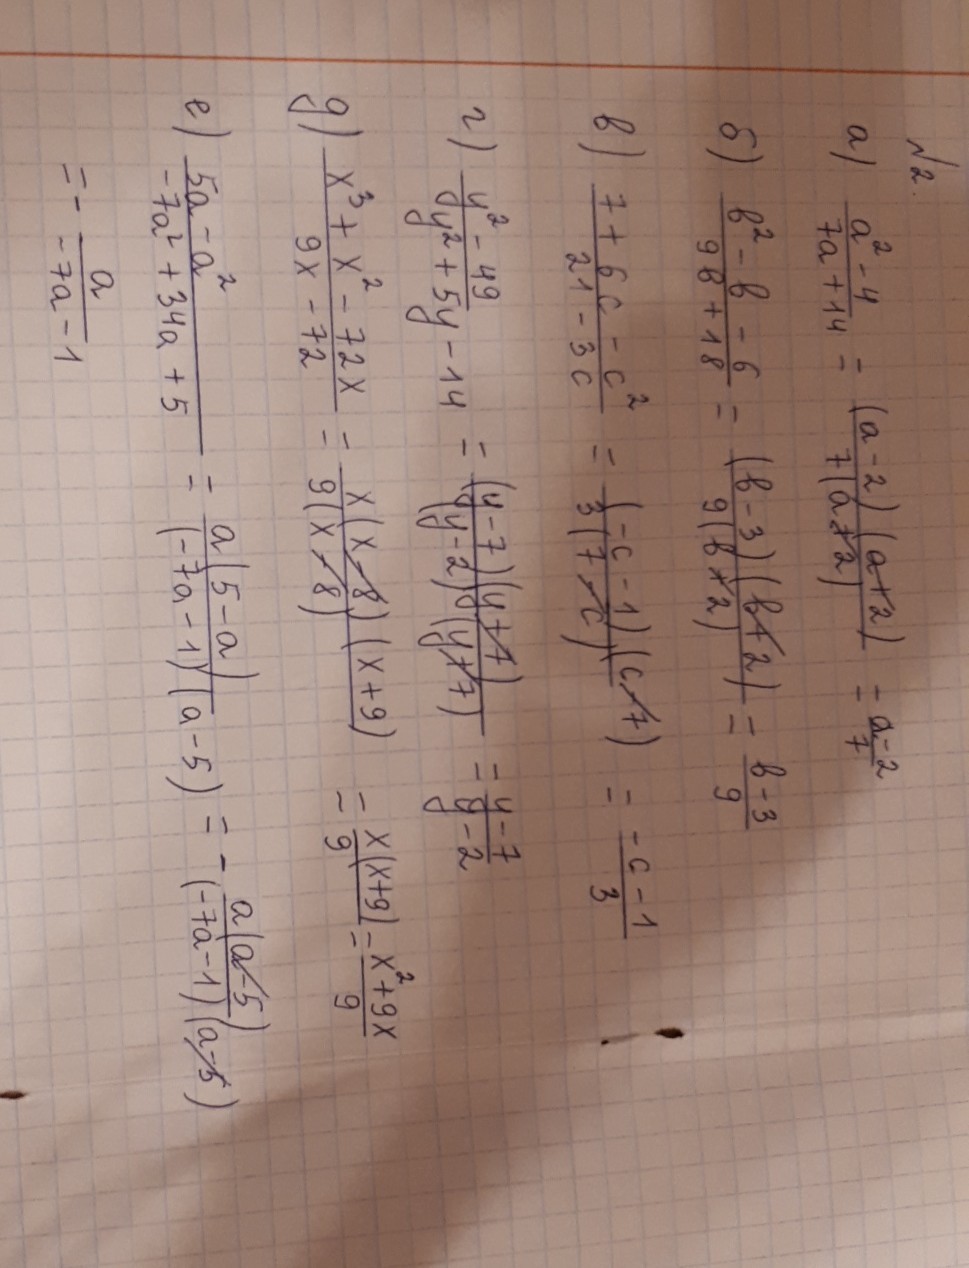 №2.
а) (a² - 4)/(7a + 14) = ((a - 2)(a + 2))/(7(a + 2)) = (a - 2)/7
б) (b² - b - 6)/(9b + 18) = ((b - 3)(b + 2))/(9(b + 2)) = (b - 3)/9
в) (7 + 6c - c²)/(21 - 3c) = ((-c - 1)(c - 7))/(3(7 - c)) = (-c - 1)/3
г) (y² - 49)/(y² + 5y - 14) = ((y - 7)(y + 7))/((y - 2)(y + 7)) = (y - 7)/(y - 2)
д) (x³ + x² - 72x)/(9x - 72) = (x(x - 8)(x + 9))/(9(x - 8)) = (x(x + 9))/9 = (x² + 9x)/9
е) (5a - a²)/(-7a² + 34a + 5) = (a(5 - a))/((-7a - 1)(a - 5)) = - (a(a - 5))/((-7a - 1)(a - 5))
= - a/(-7a - 1)